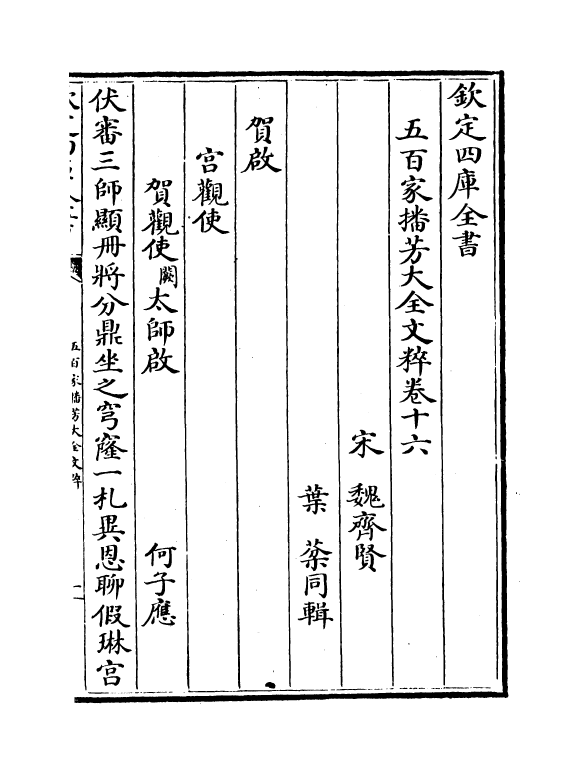 欽定四庫全書
五百家播芳大全文粹卷十六
宋 魏齊賢
葉 棻同輯
賀啟
宮觀使
賀觀使闕太師啟 何子應
伏審三師顯冊將分鼎坐之穹窿一札異恩聊假琳宮
五百家播芳大全文粹